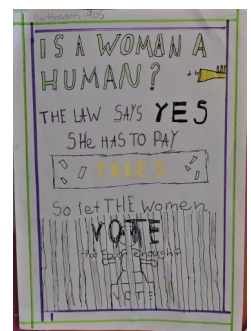 Suffragettes 1905
IS A WOMAN A
HUMAN?
THE LAW SAYS YES
SHe HAS TO PAY
TAXES
So let THE women
VOTE
VOTE